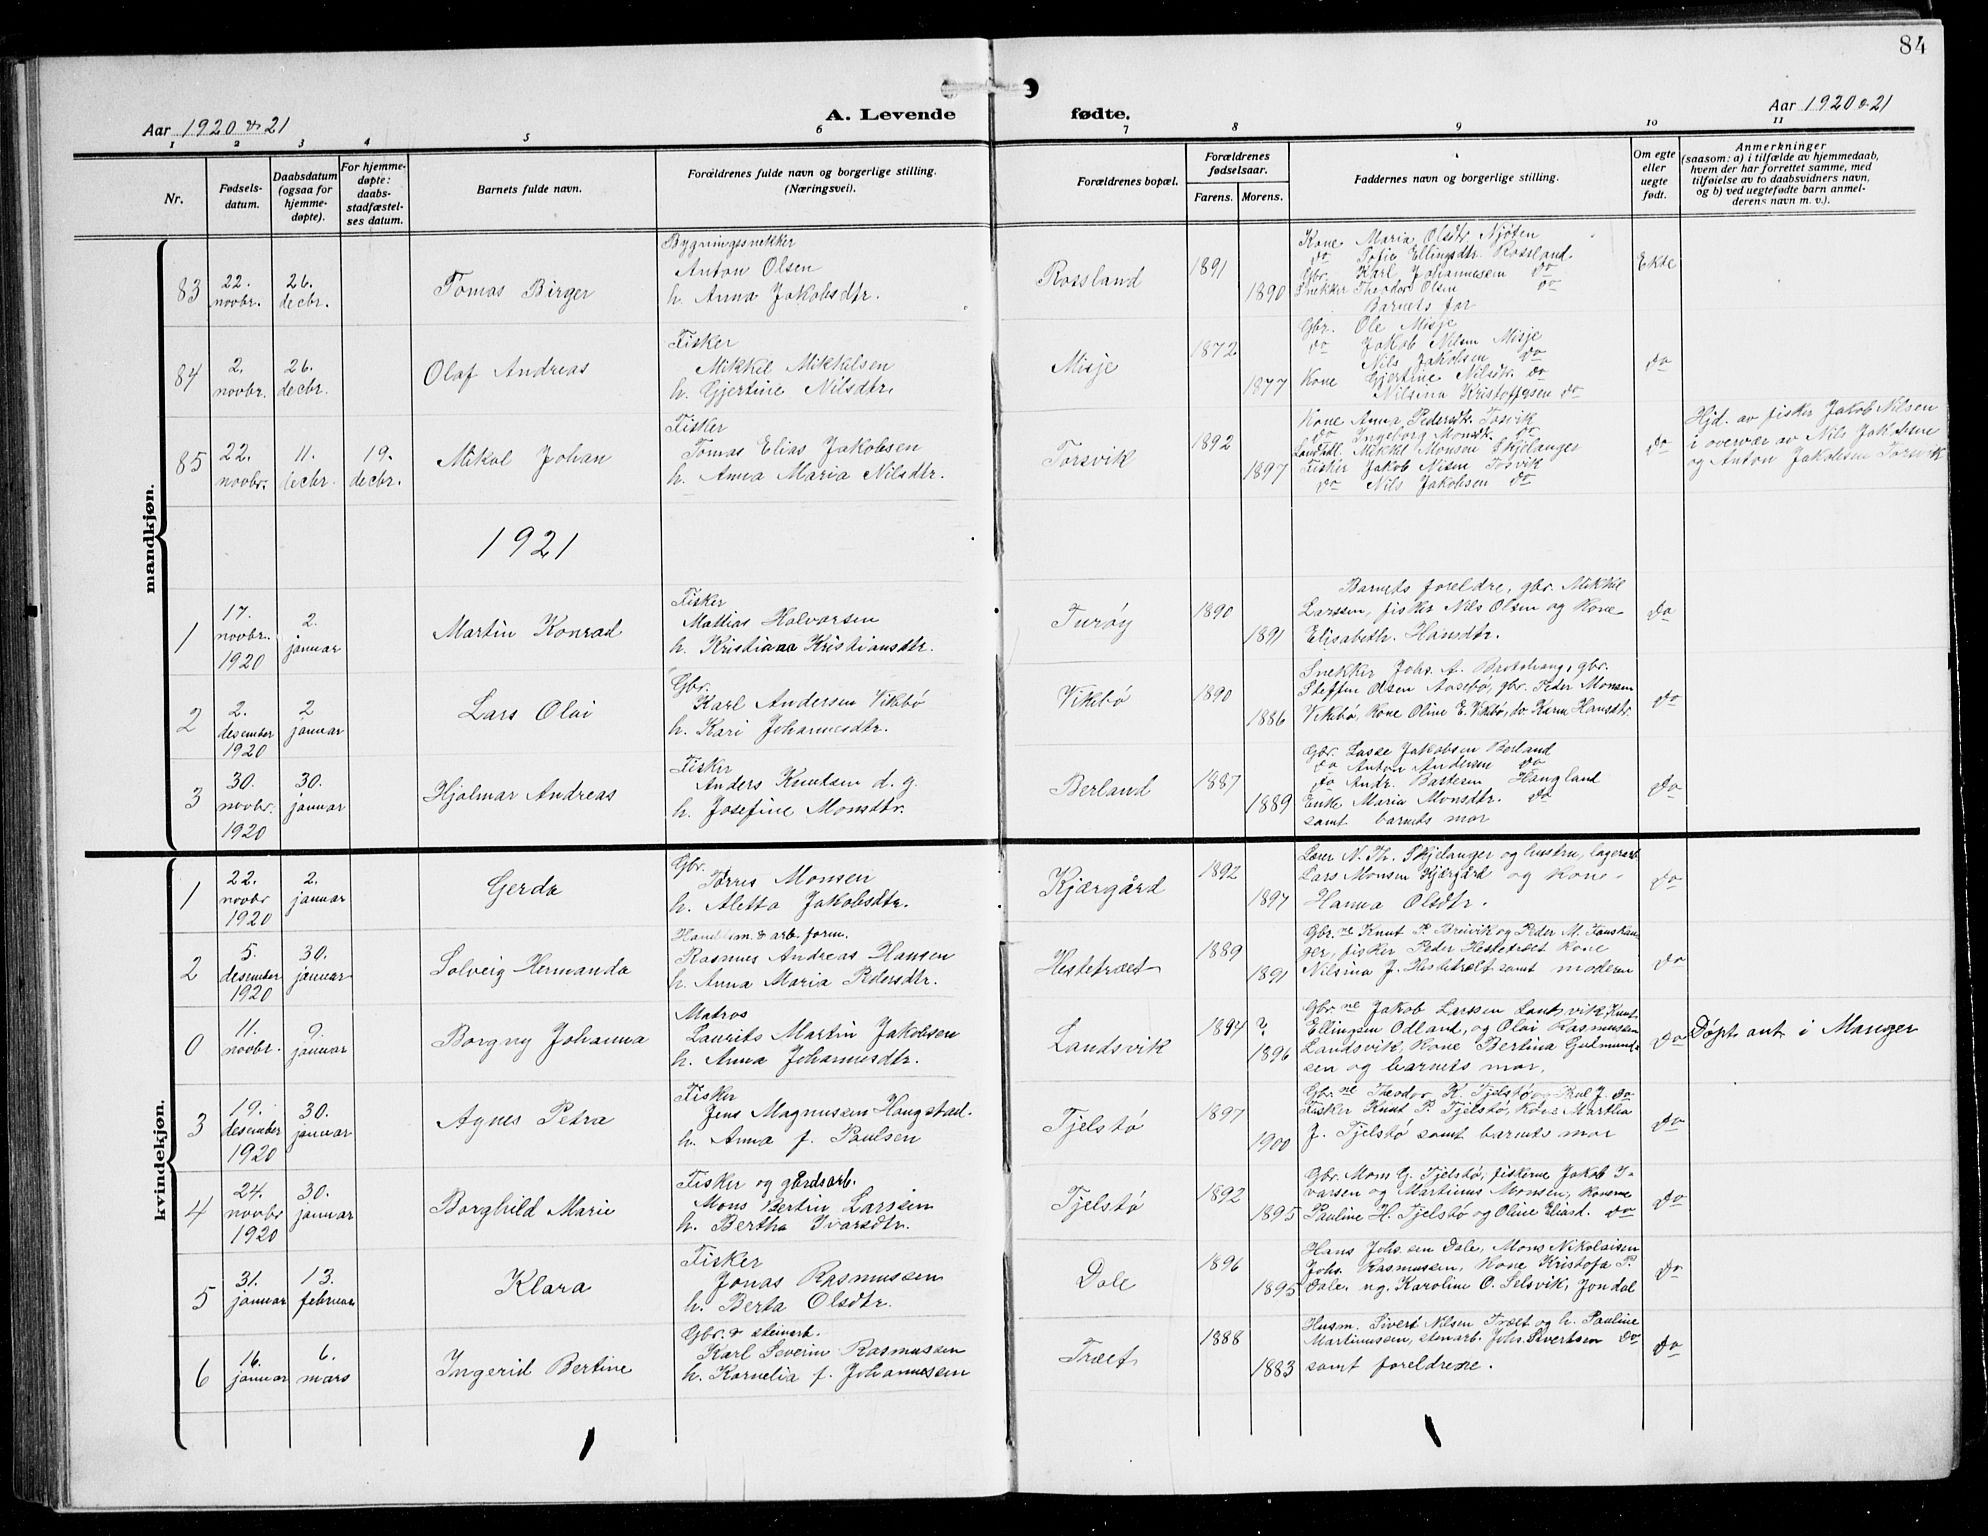 84
Aar 1920 & 21
A. Levende fødte.
Aar 1920 & 21
1 2 3 4 5 6 7 8 9 10 11
Nr.
Fødsels-
datum.
Daabsdatum
(ogsaa for
hjemme-
døpte).
For hjemme-
døpte:
daabs-
stadfæstel-
ses datum.
Barnets fulde navn.
Forældrenes fulde navn og borgerlige stilling.
(Næringsvei).
Forældrenes bopæl.
Forældrenes
fødselsaar.
Farens. Morens.
Faddernes navn og borgerlige stilling.
Om egte
eller
uegte
født.
Anmerkninger
(saasom: a) i tilfælde av hjemmedaab,
hvem der har forrettet samme, med
tilføielse av to daabsvidners navn,
og b) ved uegtefødte barn anmel-
derens navn m. v.).
mandkjøn.
83
22.
novbr.
26.
decbr.
Tomas Birger
Bygningssnekker
Anton Olsen
h. Anna Jakobsdtr.
Rossland
1891
1890
Kone Maria Olsdtr Njøten
do Sofie Ellingsdtr. Rossland
Gbr. Karl Johannesen do
Snekker Theodor Olsen do
Barnets far
Ekte
84
2.
novbr.
26.
decbr.
Olaf Andreas
Fisker
Mikkel Mikkelsen
h. Gjertine Nilsdtr.
Misje
1872
1877
Gbr. Ole Misje
do Jakob Nilsen Misje
Nils Jakobsen do
Kone Gjertine Nilsdtr do
Nilsina Kristoffersen do
do
85
22.
novbr.
11.
decbr.
19.
decbr.
Mikal Johan
Fisker
Tomas Elias Jakobsen
h. Anna Maria Nilsdtr.
Torsvik
1892
1897
Kone Anna Pedersdtr. Torsvik
do Ingeborg Monsdtr. do
Mikkel Monsen Skjelanger
Fisker Jakob Nilsen Tosvik
do Nils Jakobsen do
do
Hjd. av fisker Jakob Nilsen
i overvær av Nils Jakobsen
og Anton Jakobsen Torsvik
1921
1
17.
novbr.
1920
2.
januar
Martin Konrad
Fisker
Mattias Halvorsen
h. Kristianna Kristiansdtr.
Turøy
1890
1891
Barnets foreldre, gbr. Mikkel
Larssen, fisker Nils Olsen og Kone
Elisabeth Hansdtr.
do
2
2.
desember
1920
2
januar
Lars Olai
Gbr.
Karl Andersen Vikebø
h. Kari Johannesdtr.
Vikebø
1890
1886
Snekker Johs. A. , gbr.
Steffen Olsen Aasebø, gbr. Peder Monsen
Vikebø, Kone Oline E. Vikbø, do Karen Hansdtr.
do
3
30.
novbr.
1920
30.
januar
Hjalmar Andreas
Fisker
Anders Knutsen d. y.
h. Josefine Monsdtr.
Berland
1887
1889
Gbr. Lasse Jakobsen Berland
do Anton Andersen do
do Andr. Bastesen Haugland
Enke Maria Monsdtr. do
samt barnets mor
do
kvindekjøn.
1
22.
novbr
1920
2.
januar
Gerda
Gbr.
Torris Monsen
h. Aletta Jakobsdtr.
Kjærgård
1892
1897
Lærer N. Th. Skjelanger og hustru, lagerarb.
Lars Monsen Kjærgård og Kone
Hanna Olsdtr.
do
2
5.
desember
1920
30.
januar
Solveig Hermanda
Handelsm. & arb. form.
Rasmus Andreas Hansen
h. Anna Maria Pedersdtr.
Hestetræet
1889
1891
Gbr.ne Knut P. Breivik og Peder M. 
ger, fisker Peder Hestetræet Kone
Nilsina J. Hestetræet samt moderen
do
0
11.
novbr.
9.
januar
Borgny Johanna
Matros
Laurits Martin Jakobsen
h. Anna Johannesdtr.
Landsvik
1894 ?
1896
Gbr.ne Jakob Larssen Landsvik, Knut
Ellingsen Odland, og Olai Rasmussen
Landsvik, Kone Bertina Gulmund-
sen og barnets mor.
do
Døpt ant i Manger
3
19.
desember
1920
30.
januar
Agnes Petra
Fisker
Jens Magnussen Haugstad
h. Anna f. Paulsen
Tjelstø
1897
1900
Gbr.ne Theodor K Tjelstø og Paul J. do
Fisker Knut P. Tjelstø, Kone Martha
J. Tjelstø samt barnets mor
do
4
24.
novbr
1920
30.
januar
Borghild Marie
Fisker og gårdsarb.
Mons Bertin Larssen
h. Bertha Ivarsdtr.
Tjelstø
1892
1895
Gbr. Mons G. Tjelstø, fiskerne Jakob I-
varsen og Martinus Monsen, konerne
Pauline H. Tjelstø og Oline Eliasd. do
do
5
31.
januar
13.
februar
Klara
Fisker
Jonas Rasmussen
h. Berta Olsdtr.
Dale
1896
1895
Hans Johs.sen Dale, Mons Nikolaisen
Johs. Rasmussen, Kone Kristofa P.
Dale, ug. Karoline O. Selsvik, Jondal
do
6
16.
januar
6.
mars
Ingerid Bertine
Gbr. & steinarb.
Karl Severin Rasmussen
h. Kornelia f. Johannessen
Træet
1888
1883
Husm. Sivert Nilsen Træet og h. Pauline
Martinussen, stenarb. Johs. Sivertsen do
samt foreldrene.
do